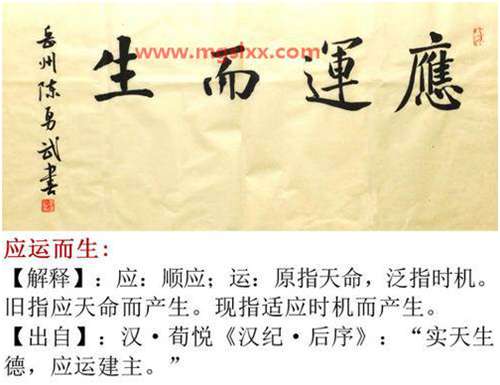 應運而生
岳州陈勇武書
www.mgslxx.com
应运而生:
【解释】:应:顺应;运:原指天命,泛指时机。
旧指应天命而产生。现指适应时机而产生。
【出自】:汉·荀悦《汉纪·后序》:“实天生
德,应运建主。”